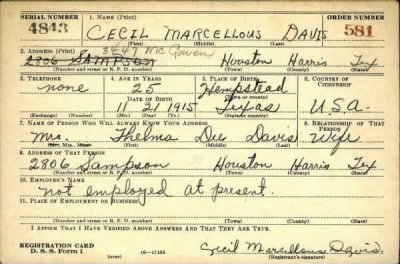 SERIAL NUMBER 1. Name (Print) ORDER NUMBER
4843 CECIL MARCELLOUS DAVIS 581
(First) (Middle) (Last)
3447 McGowen
2. Address (Print)
2806 SAMPSON Houston Harris Tex
(Number and street or R. F. D. number) (Town) (County) (State)
3. Telephone 4. Age in Years 5. Place of Birth 6. Country of Citizenship
none 25 Hempstead
Date of Birth (Town or county)
11 21 1915 Texas U.S.A.
(Mo.) (Day) (Yr.) (State or country)
7. Name of Person Who Will Always Know Your Address 8. Relationship of That Person
Mrs. Thelma Dee Davis Wife
(Mr., Mrs., Miss) (First) (Middle) (Last)
9. Address of That Person
2806 Sampson Houston Harris Tex
(Number and street or R. F. D. number) (Town) (County) (State)
10. Employer's Name
not employed at present.
11. Place of Employment or Business
(Number and street or R. F. D. number) (Town) (County) (State)
I Affirm That I Have Verified Above Answers and That They Are True.
Registration Card
D. S. S. Form 1 (over) 16—17105 Cecil Marcellous Davis
(Registrant's signature)